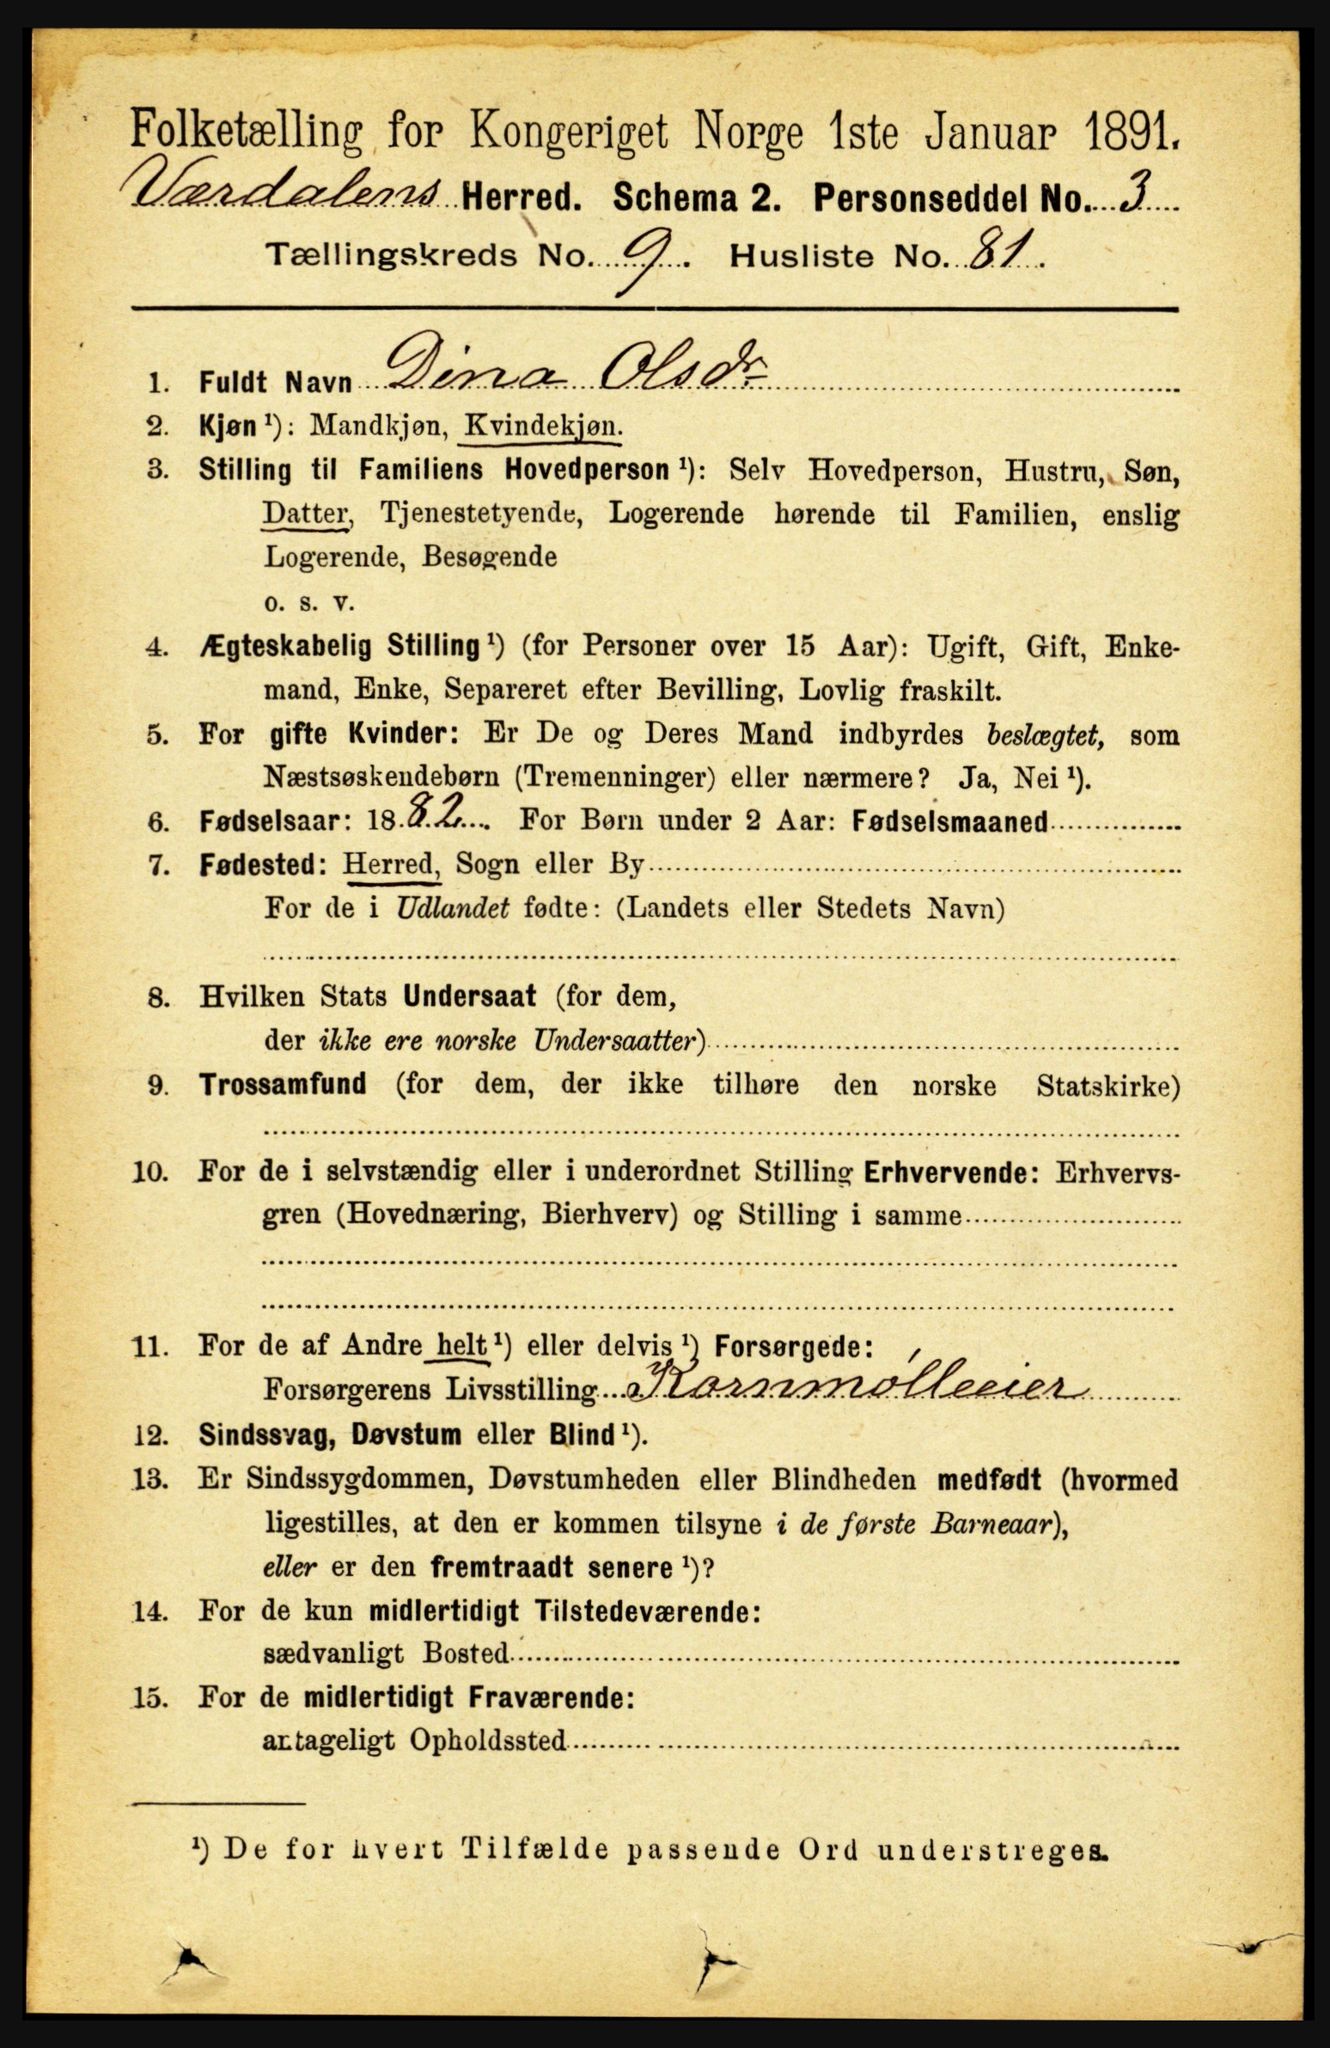 Folketælling for Kongeriget Norge 1ste Januar 1891.
Værdalens Herred. Schema 2. Personseddel No. 3
Tællingskreds No. 9. Husliste No. 81.
1. Fuldt Navn Dina Olsdr
2. Kjøn ¹): Mandkjøn, Kvindekjøn.
3. Stilling til Familiens Hovedperson ¹): Selv Hovedperson, Hustru, Søn,
Datter, Tjenestetyende, Logerende hørende til Familien, enslig
Logerende, Besøgende
o. s. v.
4. Ægteskabelig Stilling ¹) (for Personer over 15 Aar): Ugift, Gift, Enke-
mand, Enke, Separeret efter Bevilling, Lovlig fraskilt.
5. For gifte Kvinder: Er De og Deres Mand indbyrdes beslægtet, som
Næstsøskendebørn (Tremenninger) eller nærmere? Ja, Nei ¹).
6. Fødselsaar: 1882. For Børn under 2 Aar: Fødselsmaaned
7. Fødested: Herred, Sogn eller By
For de i Udlandet fødte: (Landets eller Stedets Navn)
8. Hvilken Stats Undersaat (for dem,
der ikke ere norske Undersaatter)
9. Trossamfund (for dem, der ikke tilhøre den norske Statskirke)
10. For de i selvstændig eller i underordnet Stilling Erhvervende: Erhvervs-
gren (Hovednæring, Bierhverv) og Stilling i samme
11. For de af Andre helt ¹) eller delvis ¹) Forsørgede:
Forsørgerens Livsstilling Kornmølleeier
12. Sindssvag, Døvstum eller Blind ¹).
13. Er Sindssygdommen, Døvstumheden eller Blindheden medfødt (hvormed
ligestilles, at den er kommen tilsyne i de første Barneaar),
eller er den fremtraadt senere ¹)?
14. For de kun midlertidigt Tilstedeværende:
sædvanligt Bosted
15. For de midlertidigt Fraværende:
antageligt Opholdssted
¹) De for hvert Tilfælde passende Ord understreges.